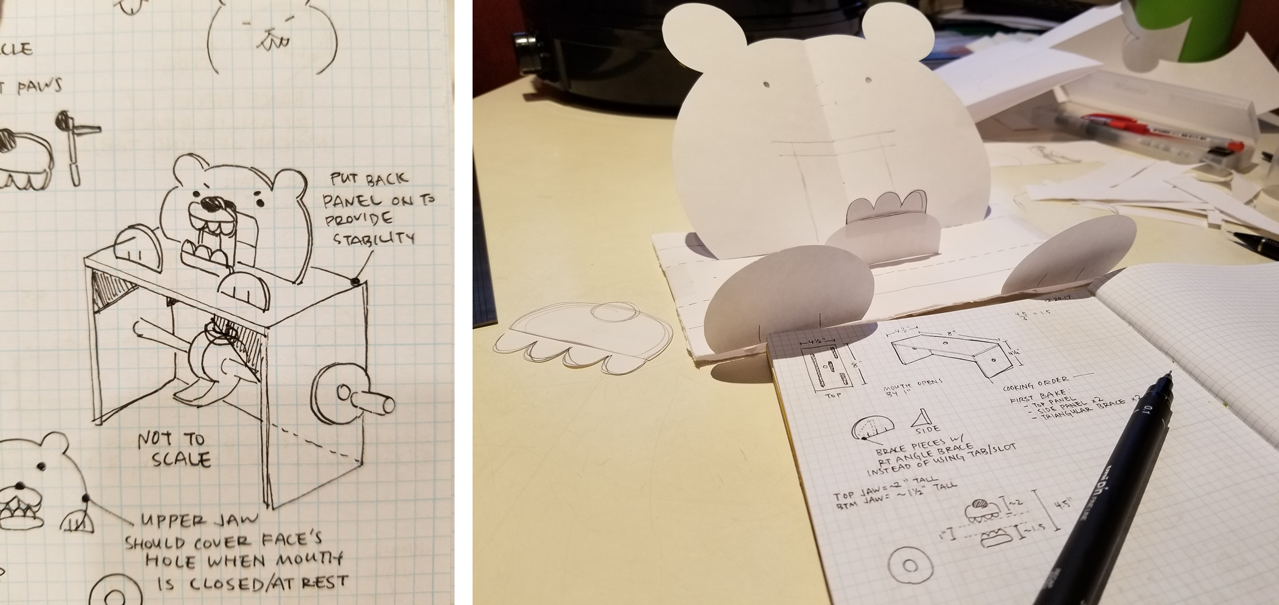 CLE
T PAWS
PUT BACK
PANEL ON TO
PROVIDE
STABILITY
NOT TO
SCALE
UPPER JAW
SHOULD COVER FACE'S
HOLE WHEN MOUTH
IS CLOSED/AT REST
4½"
8"
TOP
MOUTH OPENS
BY 1"
COOKING ORDER
FIRST BAKE:
- TOP PANEL
- SIDE PANEL x2
- TRIANGULAR BRACE x2
SIDE
BRACE PIECES W/
RT ANGLE BRACE
INSTEAD OF USING TAB/SLOT
TOP JAW = ~2" TALL
BTM JAW = ~1½" TALL
~2
1"
~1.5
4.5"
0.1